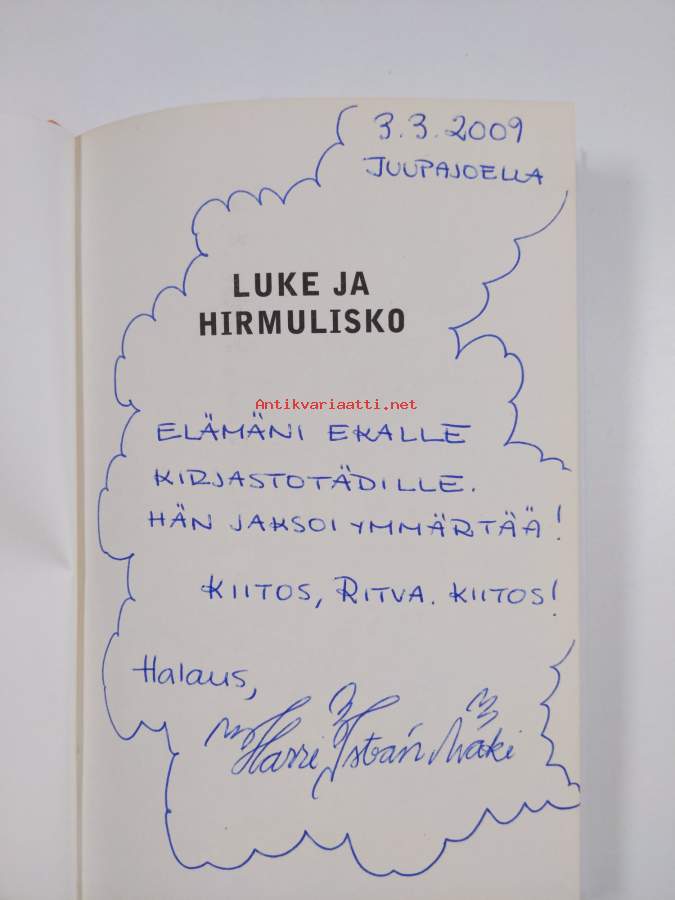 3.3.2009
JUUPAJOELLA
LUKE JA
HIRMULISKO
Antikvariaatti.net
ELÄMÄNI EKALLE
KIRJASTOTÄDILLE.
HÄN JAKSOI YMMÄRTÄÄ!
KIITOS, RITVA. KIITOS!
Halaus,
Harri István Mäki